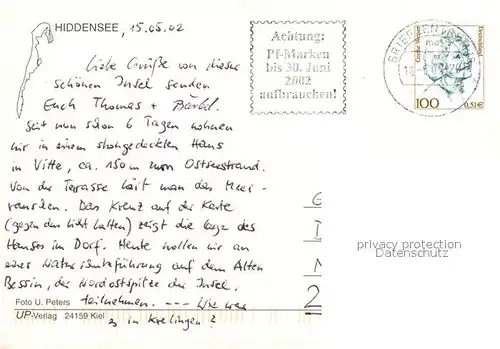 HIDDENSEE, 15.05.02
Liebe Grüße von dieser
schönen Insel senden
Euch Thomas + Bärbel.
Seit nun schon 6 Tagen wohnen
wir in einem strohgedeckten Haus
in Vitte, ca. 150 m zum Ostseestrand.
Von der Terrasse hört man das Meer-
rauschen. Das Kreuz auf der Karte
(gegen das Licht halten) zeigt die Lage des
Hauses im Dorf. Heute wollen wir an
einer Naturschutzführung auf dem Alten
Bessin, der Nordostspitze der Insel,
teilnehmen. --- Wie war
es in Krelingen?
Foto U. Peters
UP-Verlag 24159 Kiel
Achtung:
Pf-Marken
bis 30. Juni
2002
aufbrauchen!
BRIEFZENTRUM
Deutschland
100
0,51 €
privacy protection
Datenschutz
2